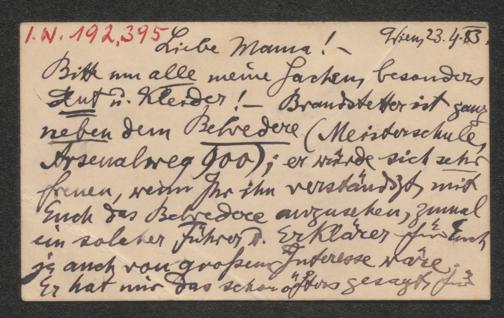 I. N. 192,395
Wien, 23.4.
Liebe Mama! –
Bitte um alle meine Sachen, besonders
Hut u. Kleider! – Brandstetter ist ganz
neben dem Belvedere (Meisterschule,
Arsenalweg); er würde sich sehr
freuen, wenn Ihr ihn verständigt, mit
Euch das Belvedere anzusehen, zumal
ein solcher Führer u. Erklärer für Euch
ja auch von großem Interesse wäre.
Er hat mir das schon öfters gesagt,